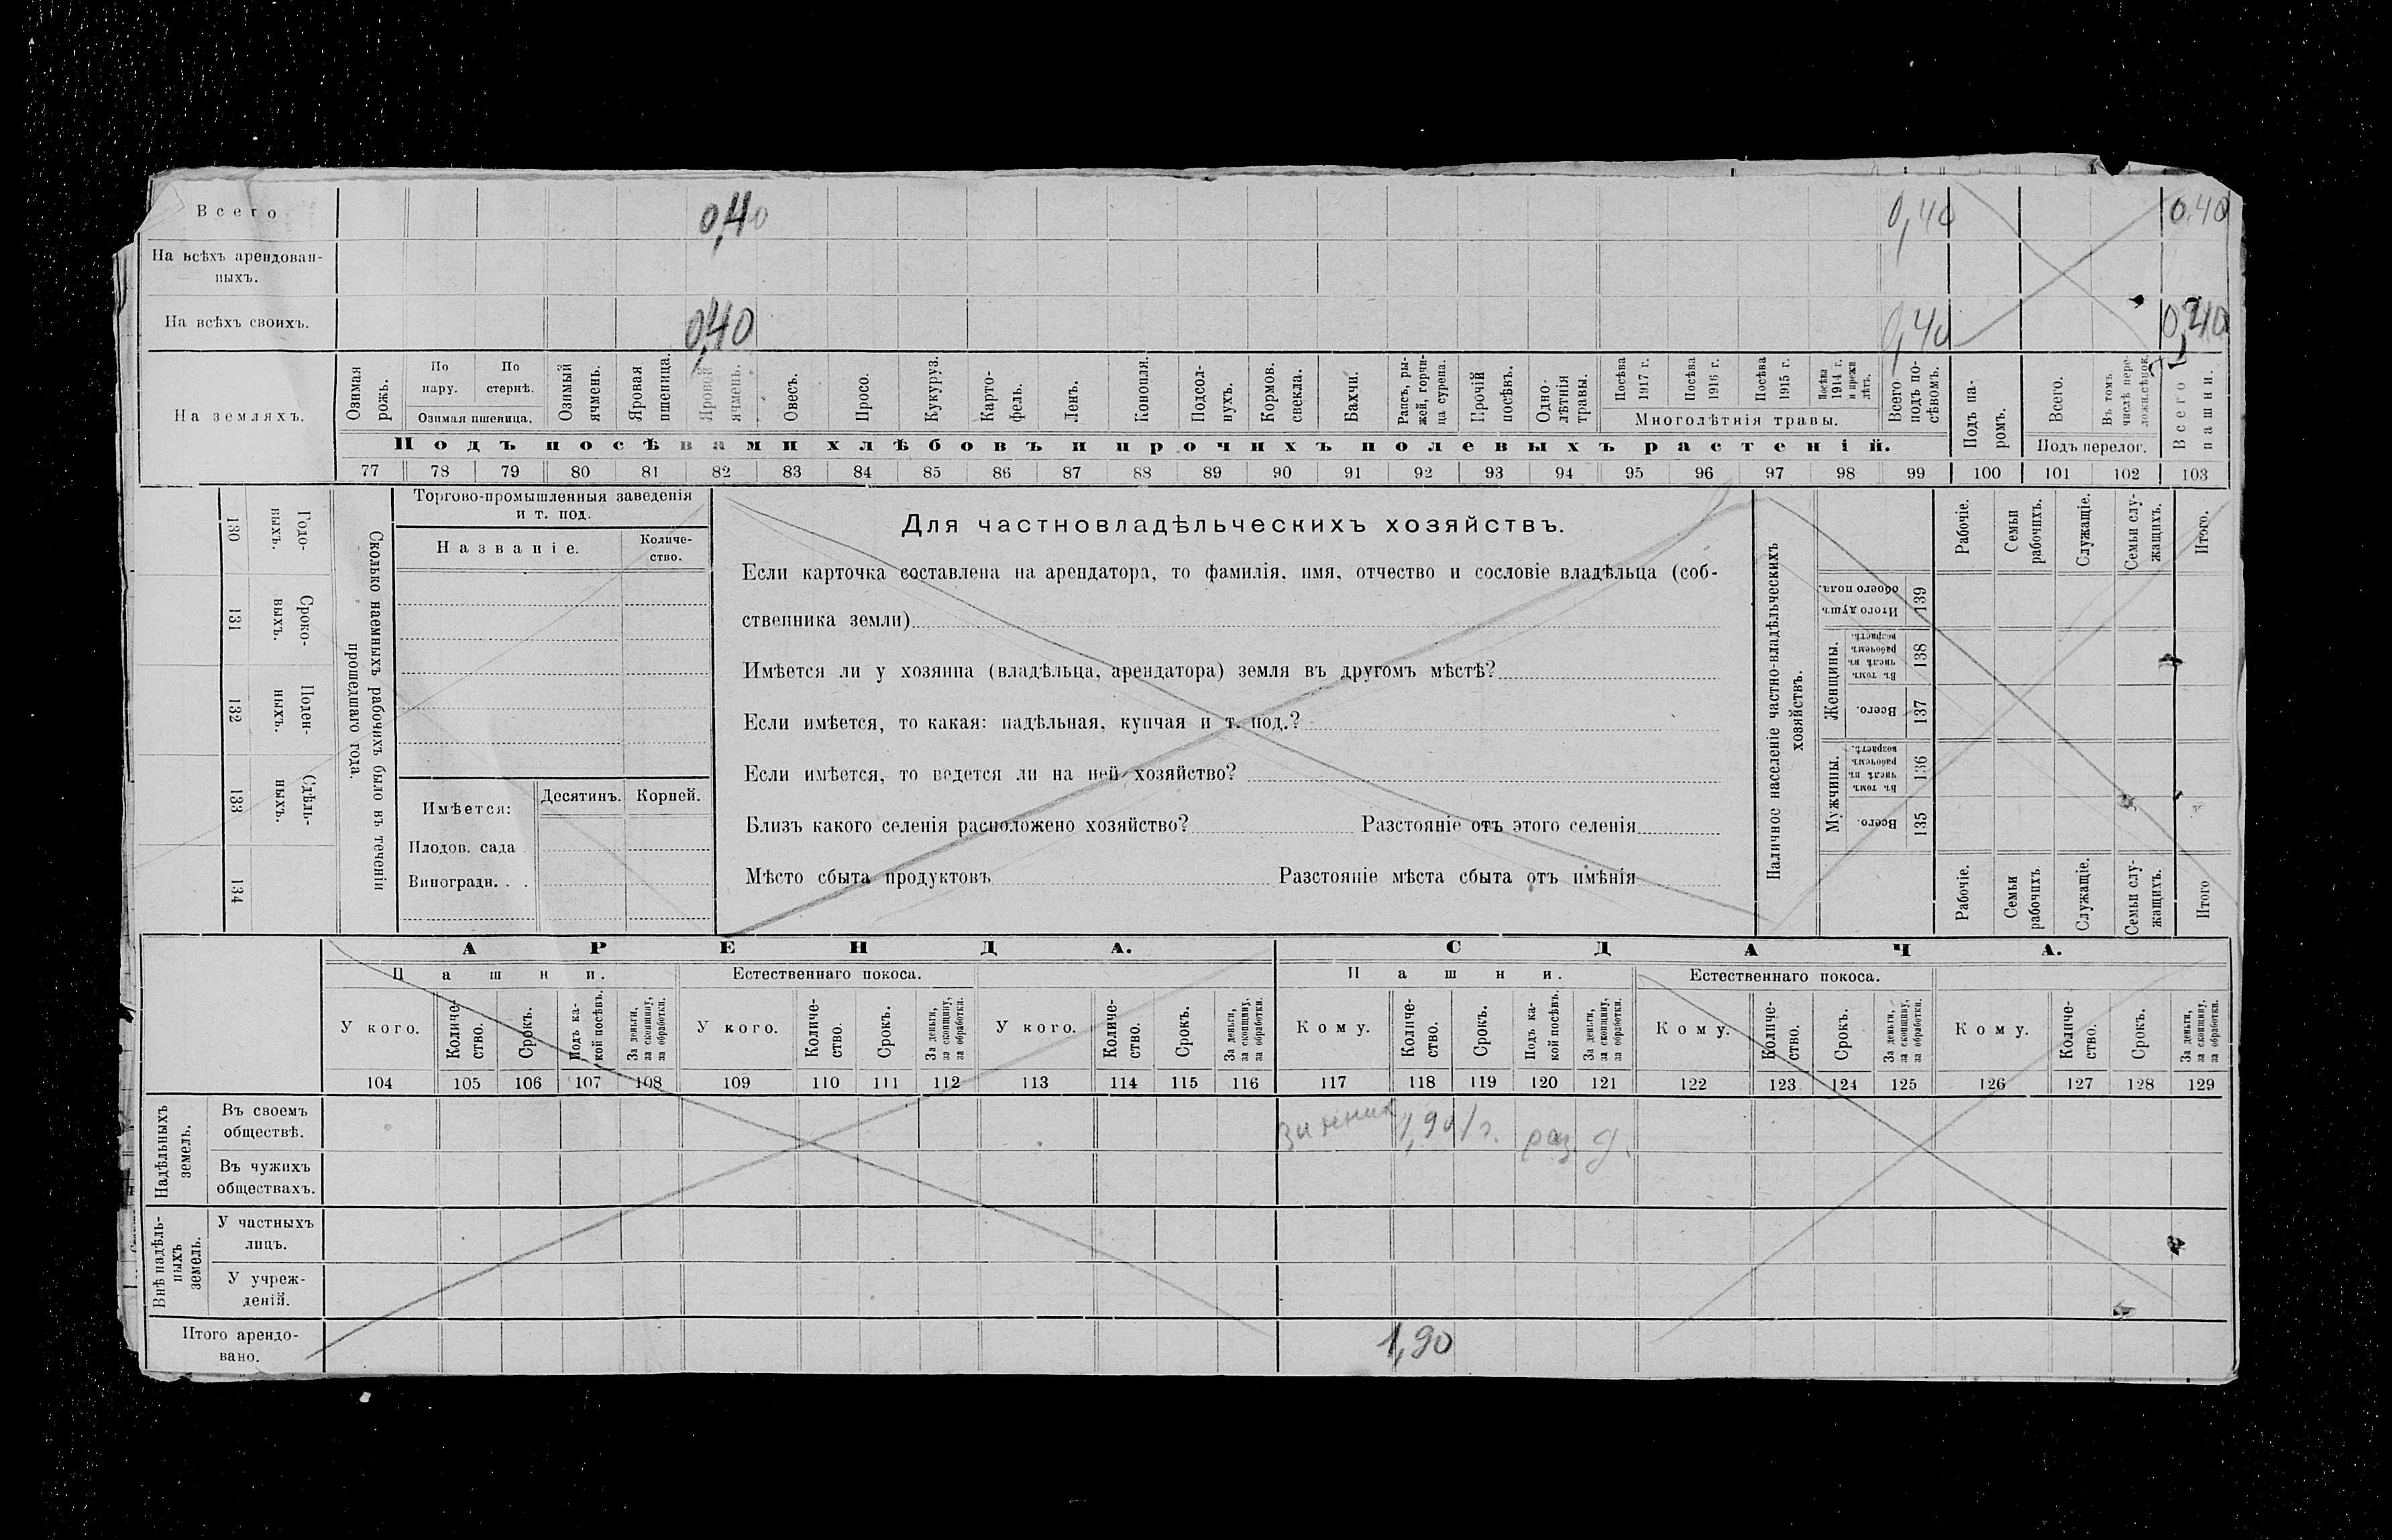 Всего 0,40 0,40 0,40
На всѣхъ арендован-
ныхъ.
На всѣхъ своихъ. 0,40 0,40 0,40
На земляхъ.
Озимая рожь.
По пару.
По стернѣ.
Озимая пшеница.
Озимый ячмень.
Яровая пшеница.
Яровой ячмень.
Овесъ.
Просо.
Кукуруз.
Карто-
фель.
Ленъ.
Конопля.
Подсол-
нухъ.
Кормов.
свекла.
Бахчи.
Рапсъ, ры-
жей, горчи-
ца сурепа.
Прочій
посѣвъ.
Одно-
лѣтнія
травы.
Посѣва
1917 г.
Посѣва
1916 г.
Посѣва
1915 г.
Посѣва
1914 г.
и прежн
лѣтъ.
Многолѣтнія травы.
Всего
подъ по-
сѣвомъ.
Подъ посѣвами хлѣбовъ и прочихъ полевыхъ растеній.
Подъ па-
ромъ.
Всего.
Въ томъ
числѣ пере-
ложн.сѣнок.
Подъ перелог.
Всего
пашни.
77 78 79 80 81 82 83 84 85 86 87 88 89 90 91 92 93 94 95 96 97 98 99 100 101 102 103
Сколько наемныхъ рабочихъ было въ теченіи
прошедшаго года.
Годо-
выхъ.
130
Сроко-
выхъ.
131
Поден-
ныхъ.
132
Сдѣль-
ныхъ.
133
134
Торгово-промышленныя заведенія
и т. под.
Названіе.
Количе-
ство.
Имѣется:
Десятинъ. Корней.
Плодов. сада
Виноградн. . .
Для частновладѣльческихъ хозяйствъ.
Если карточка составлена на арендатора, то фамилія, имя, отчество и сословіе владѣльца (соб-
ственника земли)
Имѣется ли у хозяина (владѣльца, арендатора) земля въ другомъ мѣстѣ?
Если имѣется, то какая: надѣльная, купчая и т. под.?
Если имѣется, то ведется ли на ней хозяйство?
Близъ какого селенія расположено хозяйство? Разстояніе отъ этого селенія
Мѣсто сбыта продуктовъ Разстояніе мѣста сбыта отъ имѣнія
Наличное населеніе частно-владѣльческихъ
хозяйствъ.
Рабочіе.
Семьи
рабочихъ.
Служащіе.
Семьи слу-
жащихъ.
Итого.
Итого душъ
обоего пола.
139
Женщины.
Въ томъ
числѣ въ
рабочемъ
возрастѣ.
138
Всего.
137
Мужчины.
Въ томъ
числѣ въ
рабочемъ
возрастѣ.
136
Всего.
135
Рабочіе.
Семьи
рабочихъ.
Служащіе.
Семьи слу-
жащихъ.
Итого
АРЕНДА. СДАЧА.
Пашни. Естественнаго покоса. Пашни. Естественнаго покоса.
У кого.
Количе-
ство.
Срокъ.
Подъ ка-
кой посѣвъ.
За деньги,
за скопщину,
за обработки.
У кого.
Количе-
ство.
Срокъ.
За деньги,
за скопщину,
за обработка.
У кого.
Количе-
ство.
Срокъ.
За деньги,
за скопщину,
за обработки.
Кому.
Количе-
ство.
Срокъ.
Подъ ка-
кой посѣвъ.
За деньги,
за скопщину,
за обработки.
Кому.
Количе-
ство.
Срокъ.
За деньги,
за скопщину,
за обработки.
Кому.
Количе-
ство.
Срокъ.
За деньги,
за скопщину,
за обработки.
104 105 106 107 108 109 110 111 112 113 114 115 116 117 118 119 120 121 122 123 124 125 126 127 128 129
Надѣльныхъ
земель.
Въ своемъ
обществѣ.
1,90 1 г. раз. д.
Въ чужихъ
обществахъ.
Внѣ надѣль-
ныхъ
земель.
У частныхъ
лицъ.
У учреж-
деній.
Итого арендо-
вано.
1,90